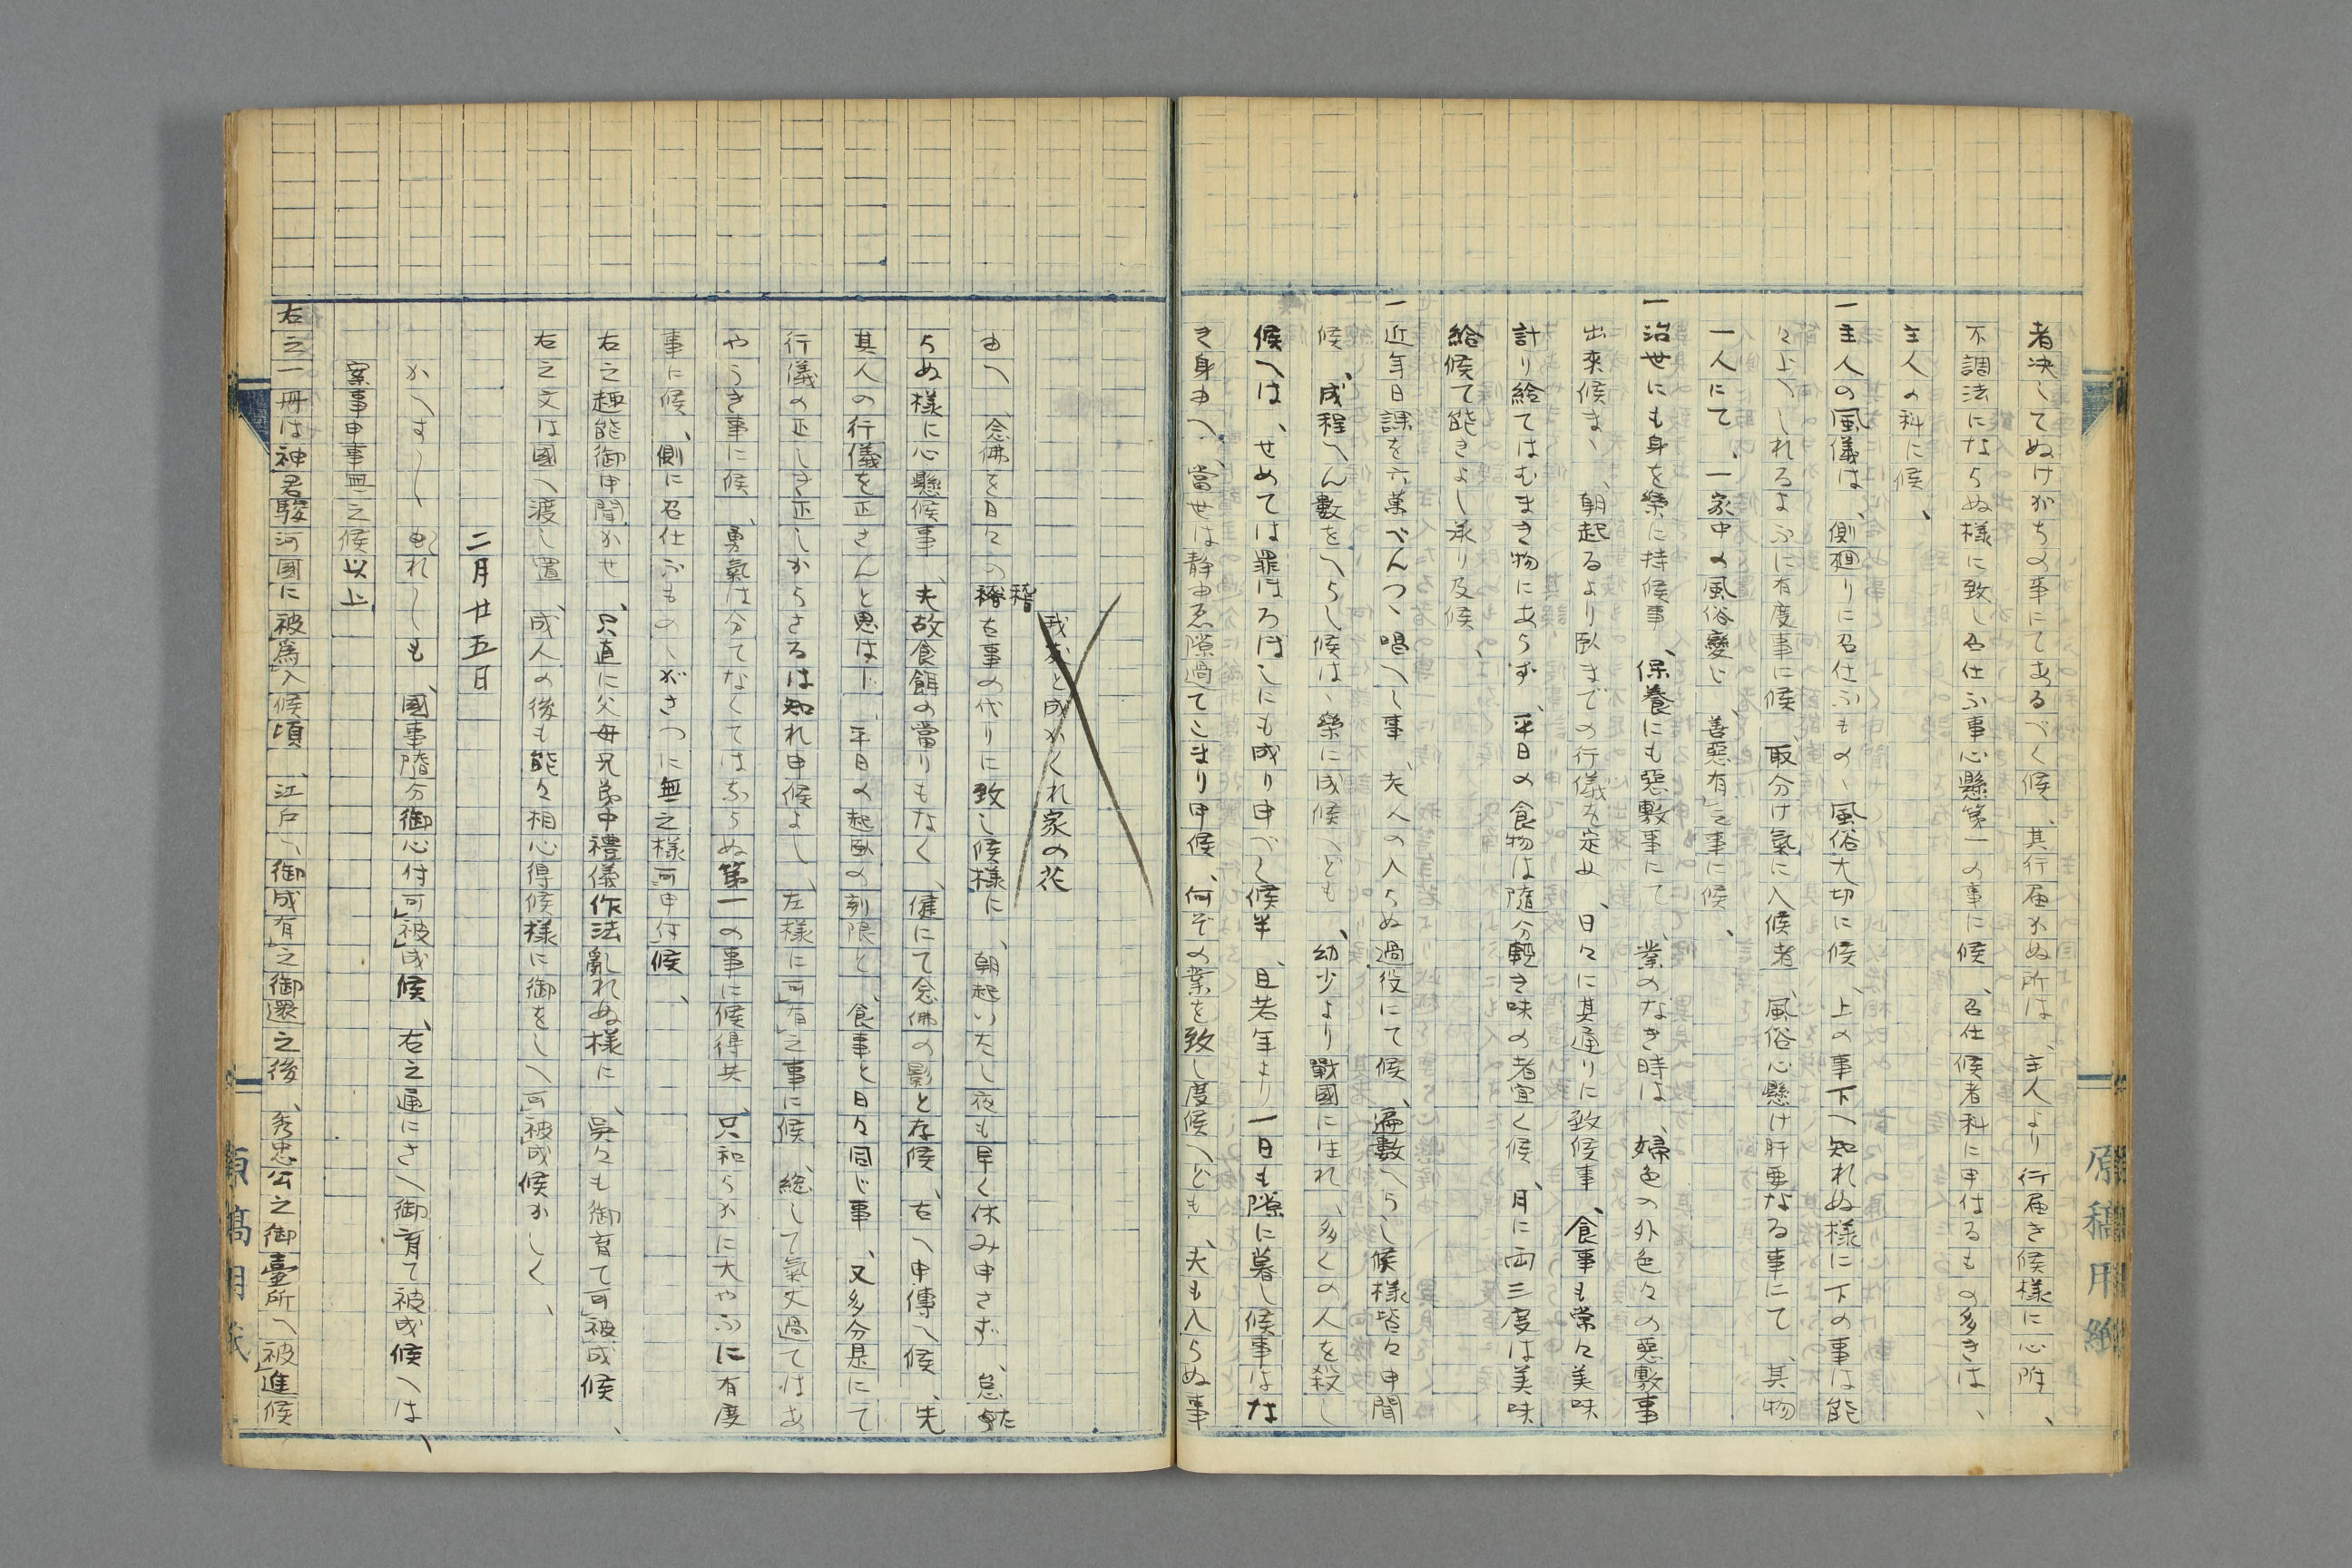 者決してぬけがちの事にてあるべく候、其行届かぬ所は、主人より行届き候様に心附、
不調法にならぬ様に致し召仕ふ事心懸第一の事に候、召仕候者科に申付るもの多きは、
主人の科に候、
一主人の風儀は、側廻りに召仕ふもの、風俗大切に候、上の事下へ知れぬ様に下の事は能
々上へしれるよふに有度事に候、取分け氣に入候者、風俗心懸け肝要なる事にて、其物
一人にて、一家中の風俗變じ、善惡有之事に候、
一治世にも身を榮に持候事、保養にも惡敷事にて、業のなき時は、婦色の外色々の惡敷事
出來候まゝ、朝起るより臥までの行儀を定め、日々に其通りに致候事、食事も常々美味
計り給てはむまき物にあらず、平日の食物は隨分輕き味の者宜く候、月に両三度は美味
給候て能きよし承り及候、
一近年日課を六萬べんつゝ唱へし事、老人の入らぬ過役にて候、遍數へらし候様皆々申聞
候、成程へん數をへらし候はゝ榮に成候へども、幼少より戰國に生れ、多くの人を殺し
候へは、せめては罪ほろばしにも成り申べく候半、且若年より一日も隙に暮し候事はな
き身ゆへ、當世は静ゆゑ隙過てこまり申候、何ぞの業を致し度候へども、夫も入らぬ事
我友と成かくれ家の花
ゆへ、念佛を日々の稽古事の代りに致し候様に、朝起いたし夜も早く休み申さず、怠た
らぬ様に心懸候事、夫故食餌の當りもなく、健にて念佛の影と存候、右へ申傳へ候、先
其人の行儀を正さんと思はゞ、平日の起臥の刻限と、食事と日々同じ事、又多分是にて
行儀の正しき正しからさるは知れ申候よし、左様に可有之事に候、総して氣丈過てはあ
やうき事に候、勇氣は分てなくてはならぬ第一の事に候得共、只和らかに大やふに有度
事に候、側に召仕ふものゝがさつに無之様可申付候、
右之趣能御申聞かせ、只直に父母兄弟中禮儀作法亂れぬ様に、呉々も御育て可被成候、
右之文は國へ渡し置、成人の後も能々相心得候様に御をしへ可被成候かしく、
二月廿五日
かへす〳〵もくれ〳〵も、國事隨分御心付可被成候、右之通にさへ御育て被成候へは、
案事申事無之候以上
右之一冊は神君駿河國に被爲入候頃、江戸へ御成有之御還之後、秀忠公之御臺所へ被進候
原稿用紙